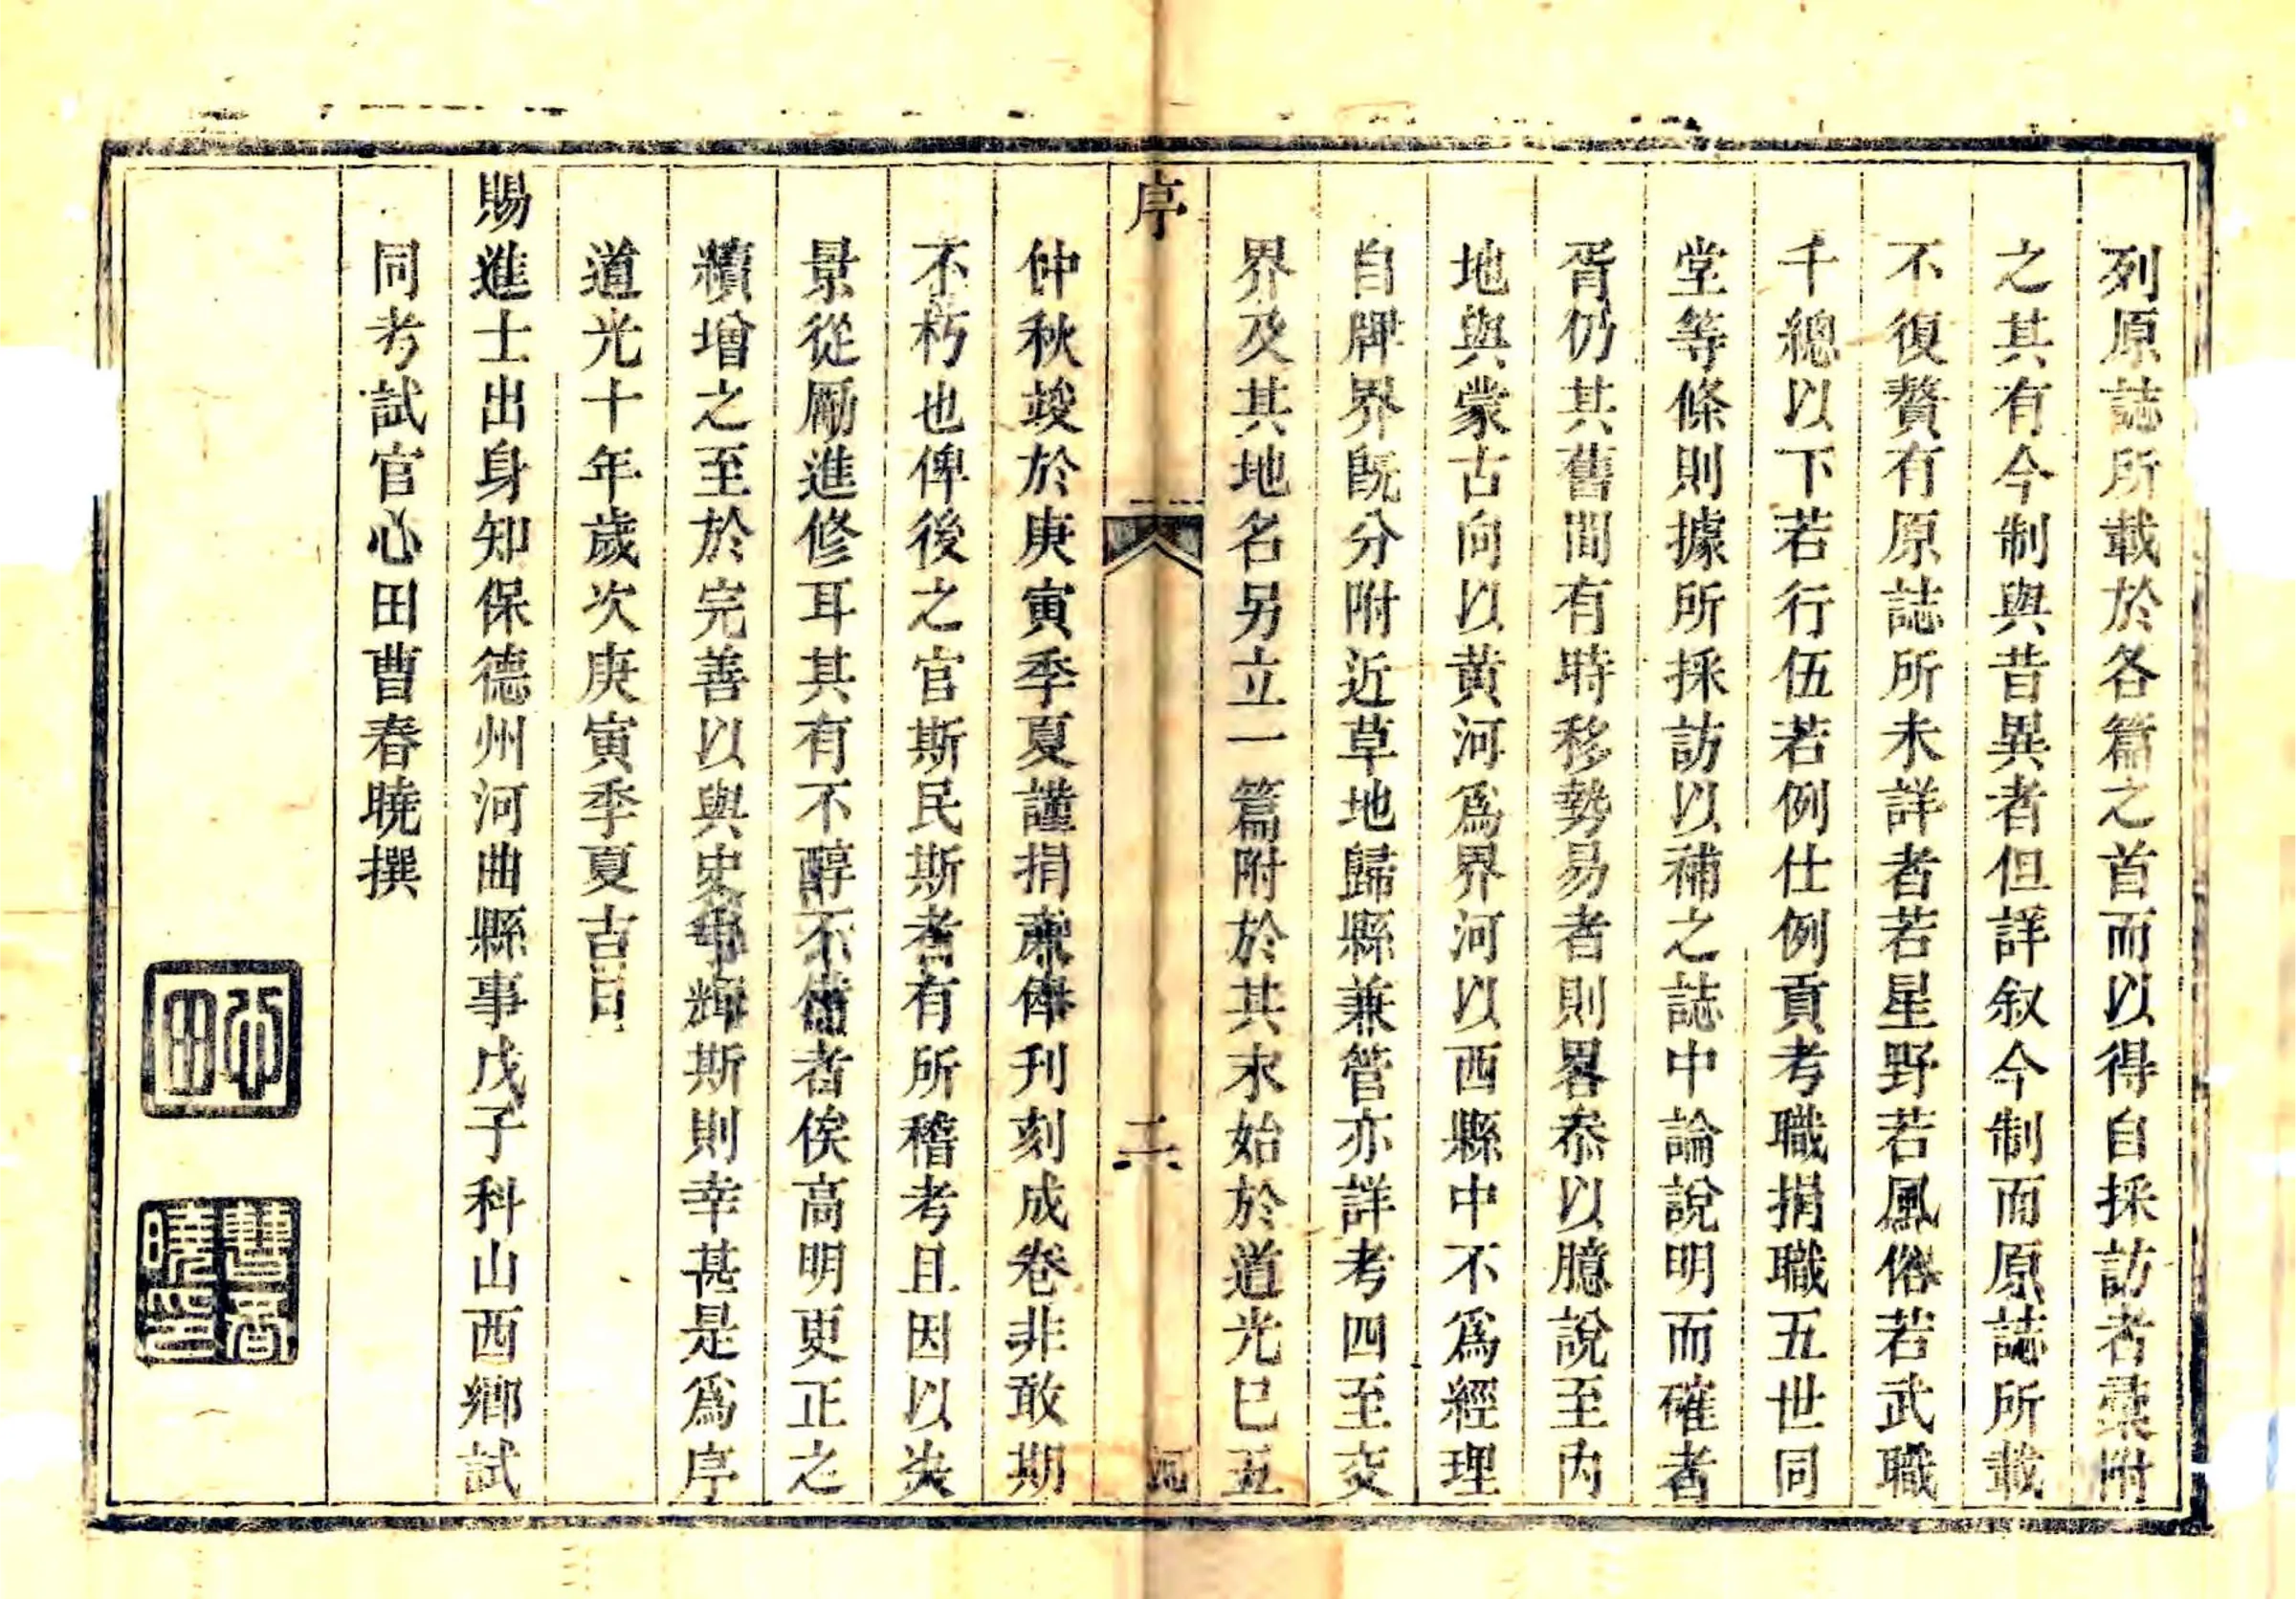 列原誌所載於各篇之首而以得自採訪者彚附
之其有今制與昔異者但詳叙今制而原誌所載
不復贅有原誌所未詳者若星野若風俗若武職
千總以下若行伍若例仕例貢考職捐職五世同
堂等條則據所採訪以補之誌中論說明而確者
胥仍其舊間有時移勢易者則畧叅以臆說至內
地與蒙古向以黃河爲界河以西縣中不爲經理
自牌界旣分附近草地歸縣兼管亦詳考四至交
界及其地名另立一篇附於其末始於道光巳丑
序 二 河
仲秋竣於庚寅季夏謹捐亷俸刊刻成卷非敢期
不朽也俾後之官斯民斯者有所稽考且因以
景從勵進修耳其有不醇不備者俟高明更正之
續增之至於完善以與史爭輝斯則幸甚是爲序
道光十年歲次庚寅季夏吉日
賜進士出身知保德州河曲縣事戊子科山西鄉試
同考試官心田曹春曉撰
心田
曹春曉印